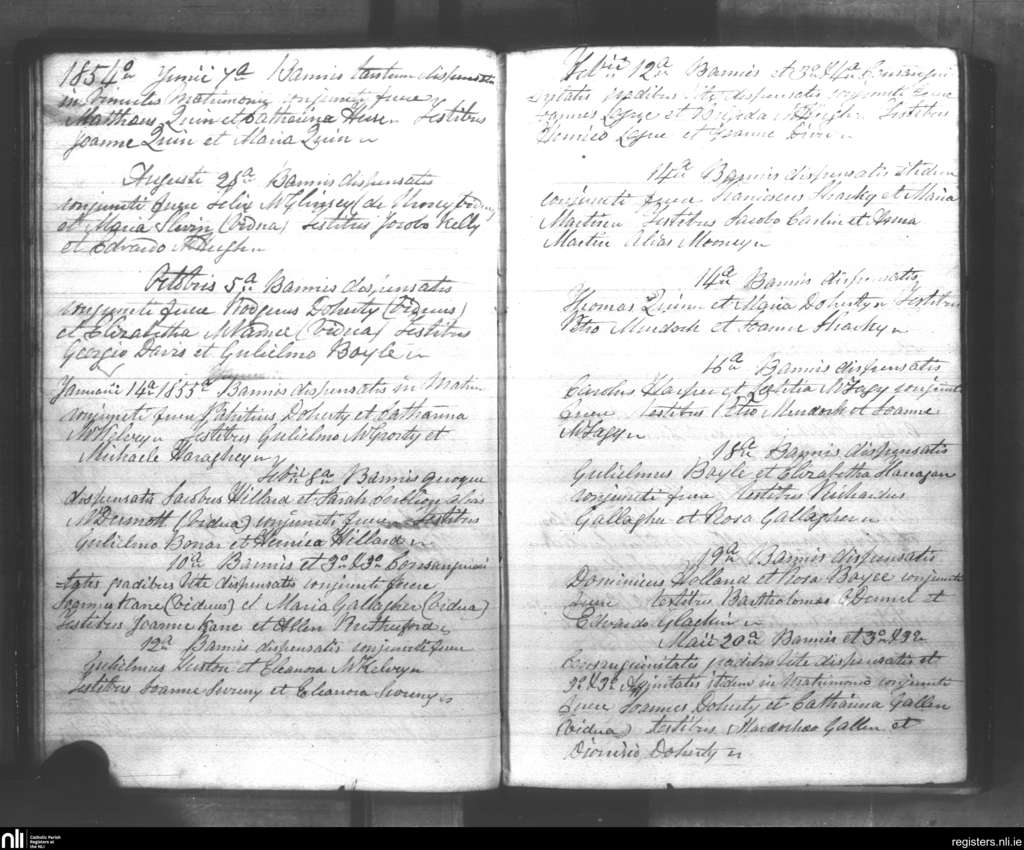 1854o Junii 7a Bannis tantum dispensatis
in Vinculis Matrimonii conjuncti fuere
Matthaus Quin et Catharina Testibus
Joanne Quin et Maria Quin
Augusti 28a Bannis dispensatis
conjuncti fuere Felix McGlinsey (de
et Maria Slevin (Vidua) Testibus Jacobo Kelly
et Edvardo McHugh
Octobris 5a Bannis dispensatis
conjuncti fuere Rodgerus Doherty (Viduus)
et Elizabetha McDamee (Vidua) Testibus
Georgio Davis et Gulielmo Boyle
Januarii 14a 1855a Bannis dispensatis in Matrim
conjuncti fuere Patritius Doherty et Catharina
McKelvey Testibus Gulielmo McGrorty et
Michaele Haraghey
Febii 8a Bannis quoque
dispensatis Jacobus Hillard et Sarah alias
McDermott (Vidua) conjuncti fuere Testibus
Gulielmo Bonar et Henrica Hillard
10a Bannis et 3o & 3o Consanguini
-tatis gradibus rite dispensatis conjuncti fuere
Joannes Kane (Viduus) et Maria Gallagher (Vidua)
Testibus Joanne Kane et Allen Rutherford
12a Bannis dispensatis conjuncti fuere
Gulielmus Huston et Eleanora McKelvey
Testibus Joanne Sweeny et Eleanora Sweeny
Febii 12a Bannis et 3o & 4o Consangui
nitatis gradibus rite dispensatis conjuncti fuere
Joannes Logue et Brigida McHugh Testibus
Henrico Logue et Joanne
14a Bannis dispensatis itidem
conjuncti fuere Franciscus Sharky et Maria
Martin Testibus Jacobo Carlin et Anna
Martin Alias Morney
14a Bannis dispensatis
Thomas Quinn et Maria Doherty Testibus
Petro Murdoch et Joanne Sharky
16a Bannis dispensatis
Carolus Harper et Latitia McFagy conjuncti
fuere Testibus Petro Murdoch et Joanne
McFagy
18a Bannis dispensatis
Gulielmus Boyle et Elizabetha Flanagan
conjuncti fuere testibus Richardus
Gallagher et Rosa Gallagher
19a Bannis dispensatis
Dominicus Holland et Rosa Boyce conjuncti
fuere testibus Bartholomao O'Donnel et
Edvardo Glackin
Maii 20a Bannis et 3o & 3o
Consanguinitatis gradibus rite dispensatis et
3o & 3o Affinitatis itidem in Matrimonio conjuncti
fuere Joannes Doherty et Catharina Gallen
(Vidua) testibus Mardochao Gallen et
Dionisio Doherty
nli
Catholic Parish
Registers at
the NLI
registers.nli.ie